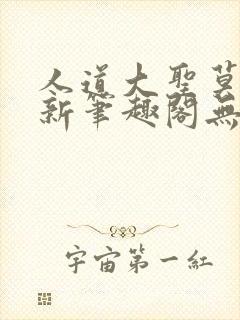 人道大聖莫
新筆趣閣無
宇宙第一紅